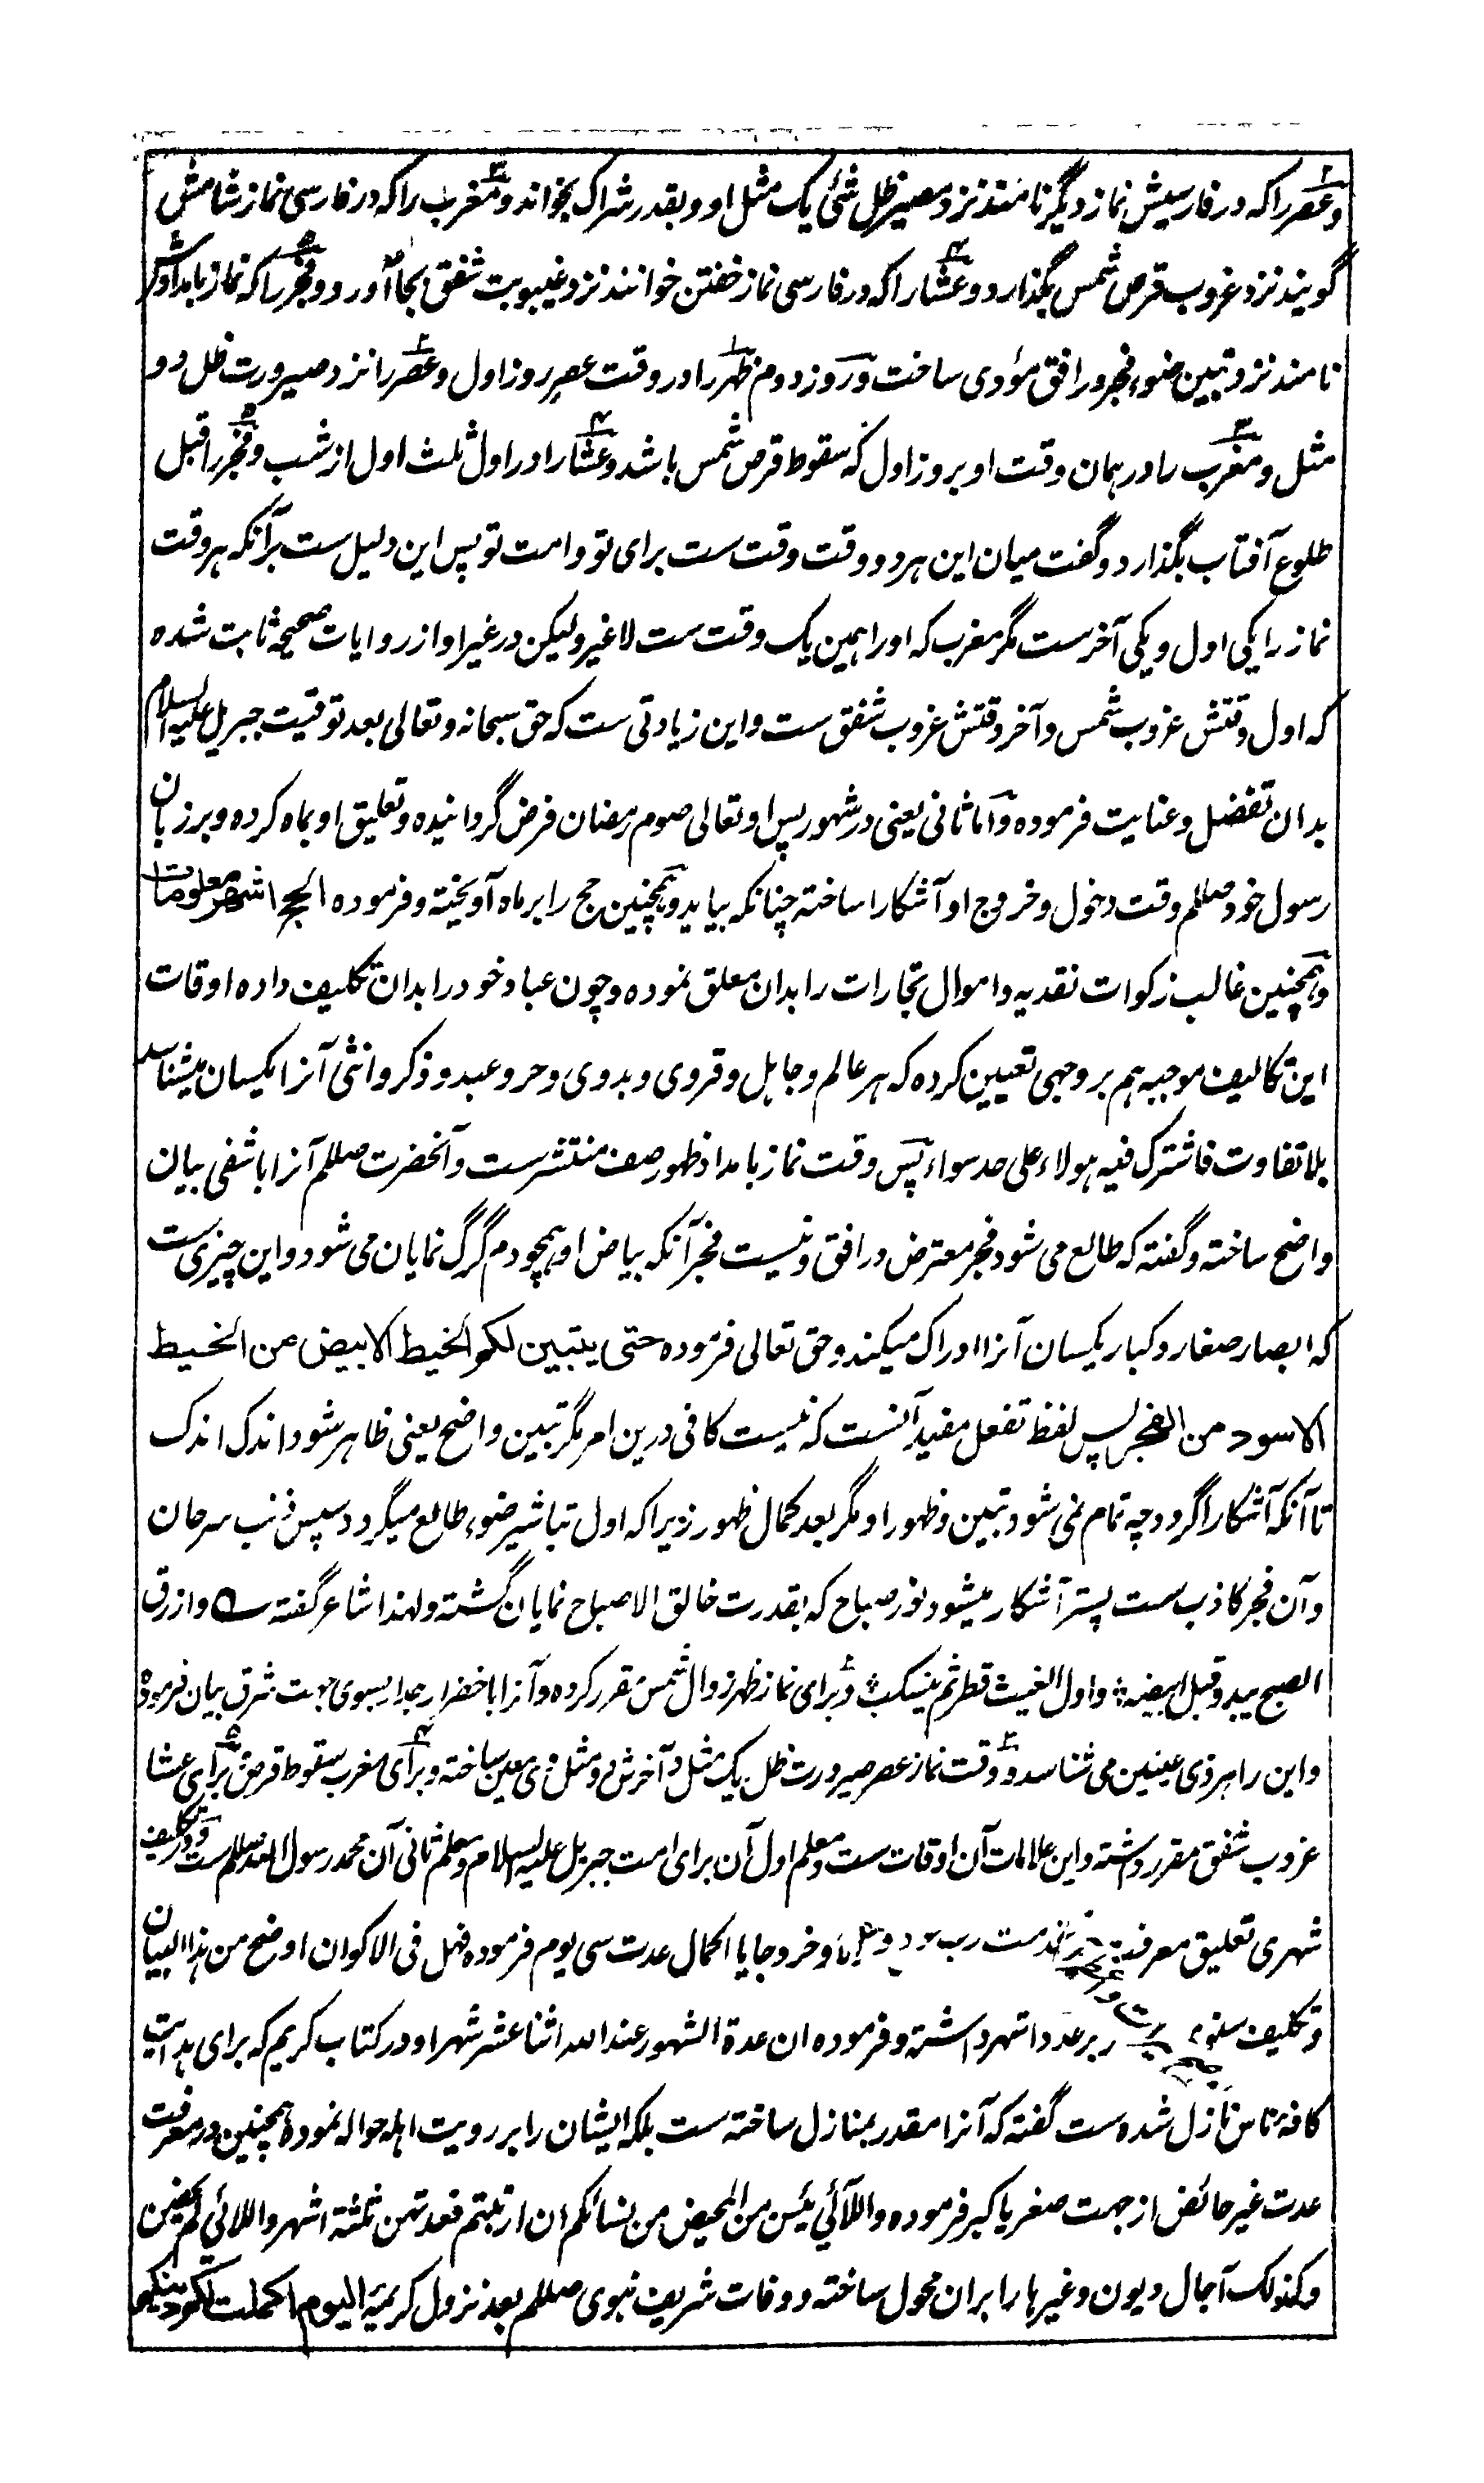 وعصر را که در فارسیش نماز دیگر نامند نزد مصیر ظل شئ یک مثل او و بقدر شراک بخواند و مغرب را که در فارسی نماز شامش
گویند نزد غروب قرص شمس بگذارد و عشا را که در فارسی نماز خفتن خوانند نزد غیبوبت شفق بجا آورد و فجر را که نماز بامدادش
نامند نزد تبین ضوء فجر در افق مؤدی ساخت و روز دوم ظهر را در وقت عصر روز اول و عصر را نزد صیرورت ظل دو
مثل و مغرب را در همان وقت او بروز اول که سقوط قرص شمس باشد و عشا را در اول ثلث اول از شب و فجر را قبل
طلوع آفتاب بگذارد و گفت میان این هر دو وقت وقت ست برای تو و امت تو پس این دلیل ست بر آنکه هر وقت
نماز را یکی اول و یکی آخرست مگر مغرب که او را همین یک وقت ست لا غیر ولیکن در غیر او از روایات صحیحه ثابت شده
که اول وقتش غروب شمس و آخر وقتش غروب شفق ست و این زیادتی ست که حق سبحانه و تعالی بعد توقیت جبریل علیه السلام
بدان تفضل و عنایت فرموده و اما ثانی یعنی در شهور پس او تعالی صوم رمضان فرض گردانیده و تعلیق او بماه کرده و بر زبان
رسول خود صللم وقت دخول و خروج او آشکارا ساخته چنانکه بیاید و همچنین حج را بر ماه آویخته و فرموده الحج اشهر معلومات
و همچنین غالب زکوات نقدیه و اموال تجارات را بدان معلق نموده و چون عباد خود را بدان تکلیف داده اوقات
این تکالیف موجبه هم بر وجهی تعیین کرده که هر عالم و جاهل و قروی و بدوی و حر و عبد و ذکر و انثی آنرا یکسان میشناسد
بلا تفاوت فاشترک فیه هولاء علی حد سواء پس وقت نماز بامداد ظهور صف منتشرست و آنحضرت صللم آنرا باشفی بیان
واضح ساخته و گفته که طالع می شود فجر معترض در افق و نیست فجر آنکه بیاض او همچو دم گرگ نمایان می شود و این چیزی ست
که ابصار صغار و کبار یکسان آنرا ادراک میکند و حق تعالی فرموده حتی یتبین لکم الخیط الابیض من الخیط
الاسود من الفجر پس لفظ تفعل مفید آنست که نیست کافی درین امر مگر تبین واضح یعنی ظاهر شود اندک اندک
تا آنکه آشکارا گردد چه تمام نمی شود تبین و ظهور او مگر بعد کمال ظهور زیرا که اول تباشیر ضوء طالع میگردد سپس ذنب سرحان
و آن فجر کاذب ست پستر آشکار میشود نور صباح که بقدرت خالق الاصباح نمایان گشته و لهذا شاعر گفته ؎ وازرق
الصبح یبدو قبل ابیضه ٭ و اول الغیث قطر ثم ینسکب ٭ و برای نماز ظهر زوال شمس مقرر کرده و آنرا باخضرار جدار بسوی جهت شرق بیان فرموده
و این را هر ذی عینین می شناسد و وقت نماز عصر صیرورت ظل یک مثل و آخرش دو مثل ذی معین ساخته و برای مغرب سقوط قرص و برای عشا
غروب شفق مقرر داشته و این علامات آن اوقات ست و معلم اول آن برای امت جبریل علیه السلام و معلم ثانی آن محمد رسول الله صللم ست و در تکلیف
شهری تعلیق معرفت و خروجا یا اکمال عدت سی یوم فرموده فهل فی الاکوان اوضح من هذا البیان
و تکلیف بر عدد اشهر داشته و فرموده ان عدة الشهور عند الله اثنا عشر شهرا و در کتاب کریم که برای هدایت
کافه ناس نازل شده ست گفته که آنرا مقدر بمنازل ساخته ست بلکه ایشان را بر رویت اهله حواله نموده و همچنین در معرفت
عدت غیر حائض از جهت صغر یا کبر فرموده واللآئی یئسن من المحیض من نسائکم ان ارتبتم فعدتهن ثلثة اشهر واللائی لم یحضن
و کذلک آجال دیون و غیرها را بران محول ساخته و وفات شریف نبوی صللم بعد نزول کریمهٔ الیوم اکملت لکم دینکم